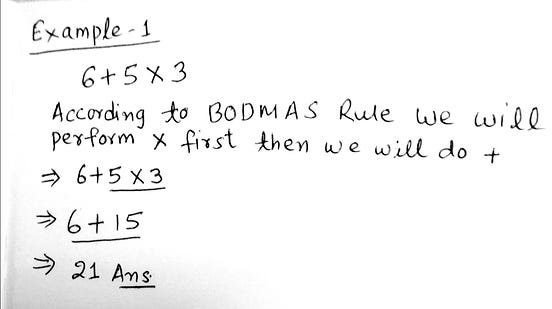 Example-1
6+5×3
According to BODMAS Rule we will
perform × first then we will do +
⇒ 6+5×3
⇒ 6+15
⇒ 21 Ans.